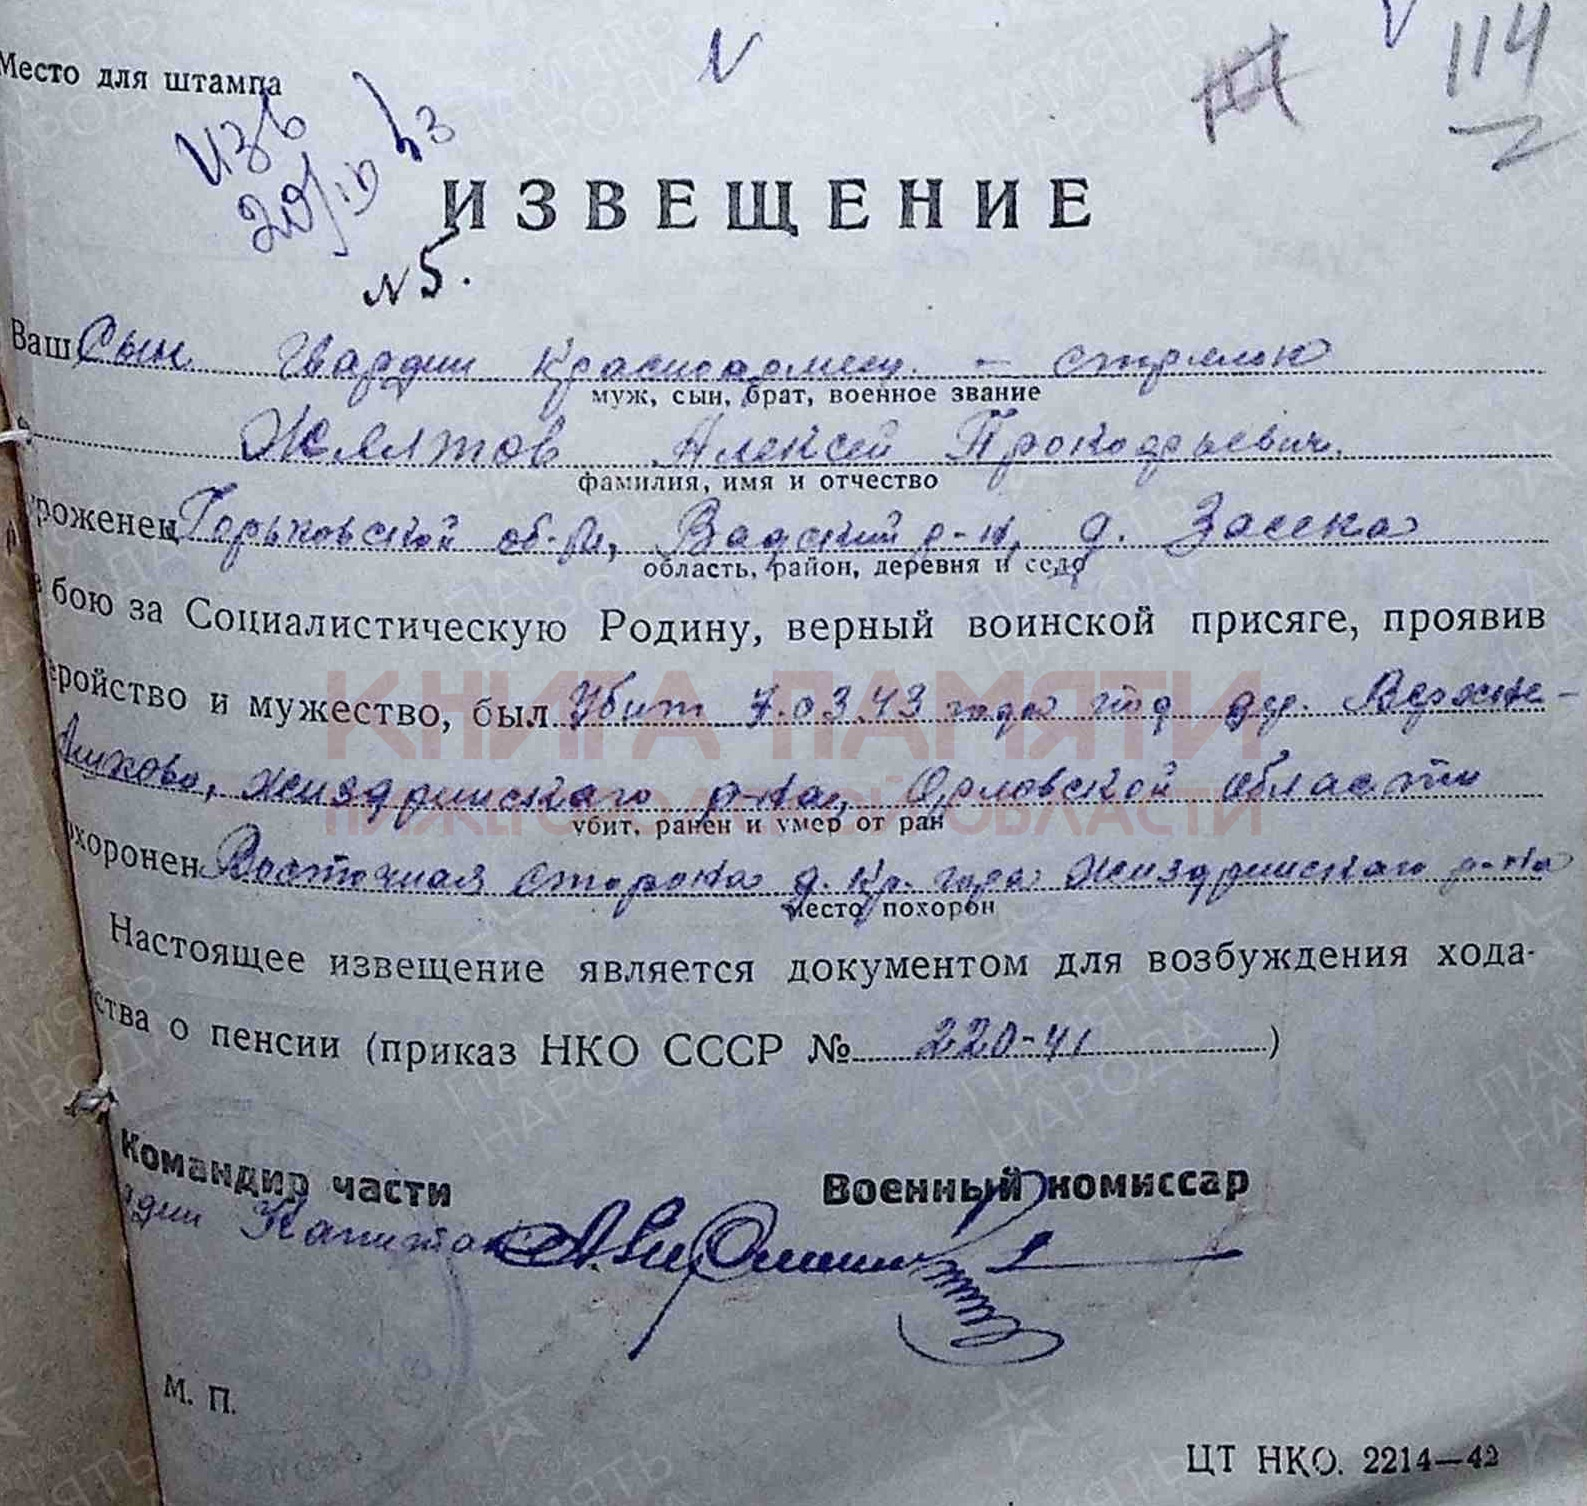 114
Место для штампа
изв
20/IV 43
ИЗВЕЩЕНИЕ
N 5.
Ваш Сын Гвардии Красноармеец. - стрелок
муж, сын, брат, военное звание
Желтов Алексей Прокофьевич.
фамилия, имя и отчество
уроженец Горьковской обл., Вадский р-н, д. Засека
область, район, деревня и село
в бою за Социалистическую Родину, верный воинской присяге, проявив
еройство и мужество, был Убит 7.03.43 года под дер. Верхне-
Ашково, Жиздринского р-на, Орловской области
убит, ранен и умер от ран
охоронен Восточная сторона д. Кр. гора Жиздринского р-на
место похорон
Настоящее извещение является документом для возбуждения хода-
ства о пенсии (приказ НКО СССР № 220-41)
Командир части Военный комиссар
дии Капитан
М. П.
ЦТ НКО. 2214—42
КНИГА ПАМЯТИ
НИЖЕГОРОДСКОЙ ОБЛАСТИ
ПАМЯТЬ НАРОДА